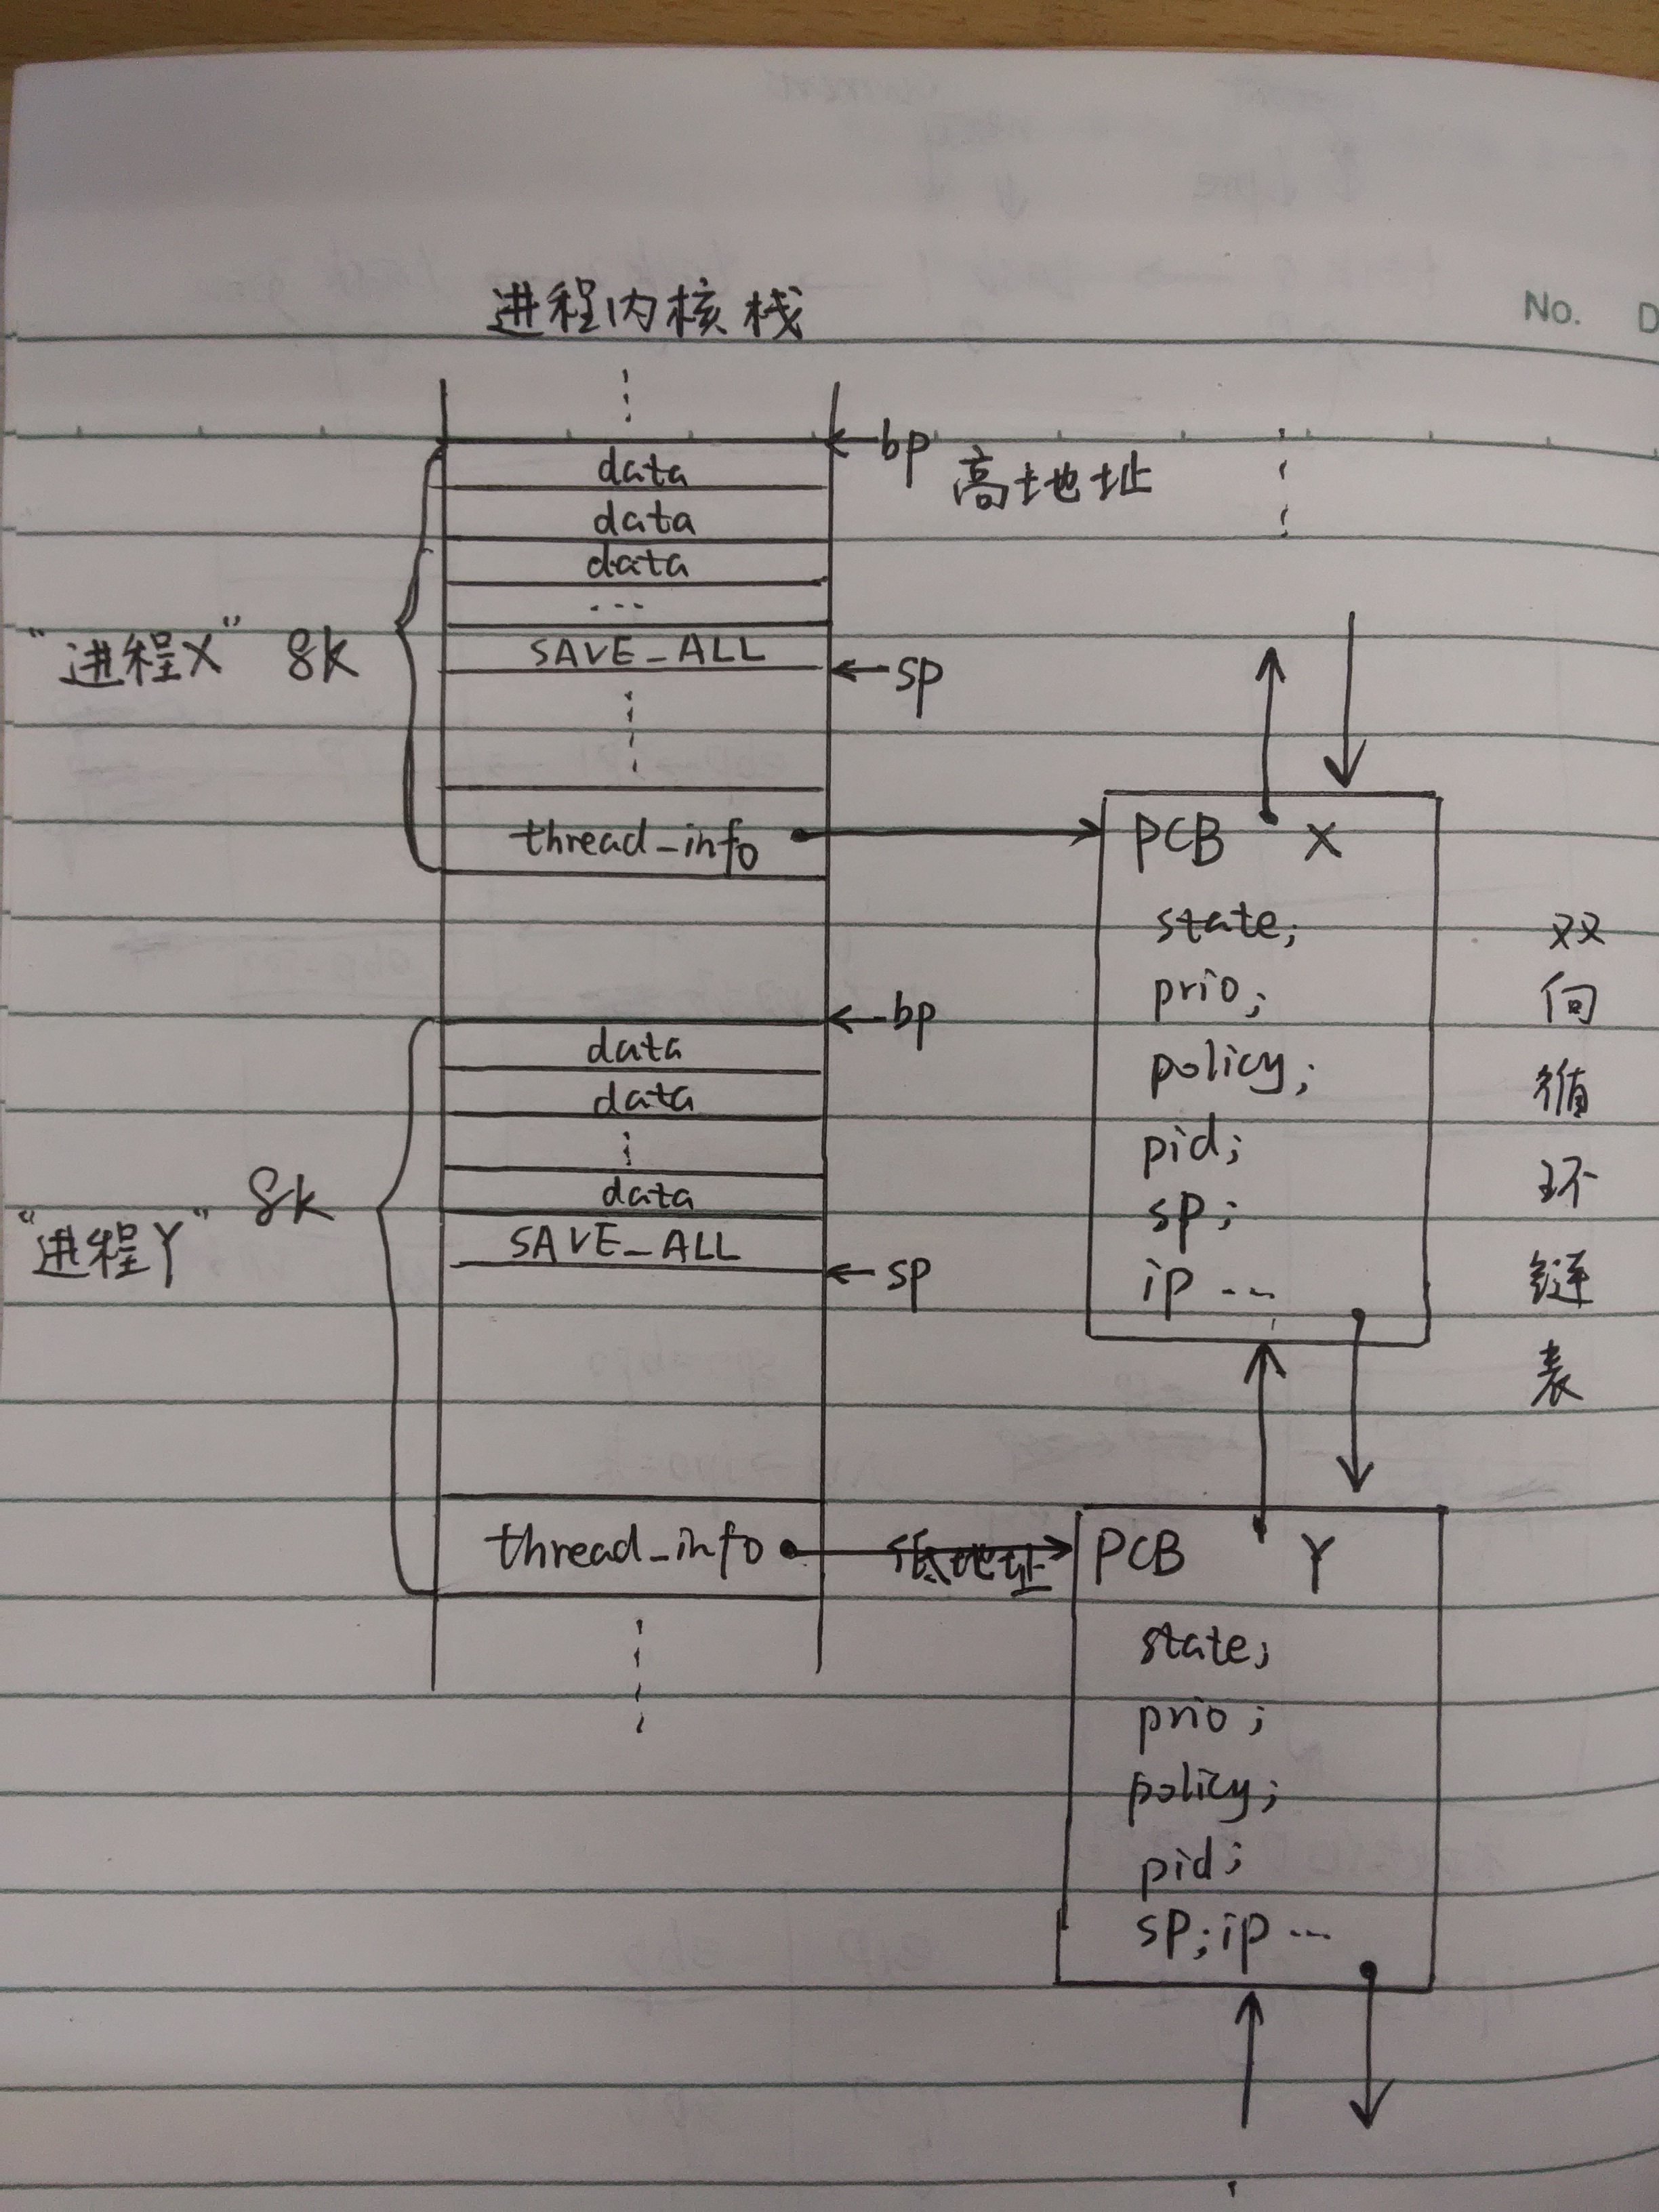 进程内核栈
No. D
bp
高地址
data
data
data
...
"进程X" 8k
SAVE_ALL
sp
thread_info
PCB X
state;
prio;
policy;
pid;
sp;
ip ...
双
向
循
环
链
表
bp
data
data
data
"进程Y" 8k
SAVE_ALL
sp
thread_info
低地址
PCB Y
state;
prio;
policy;
pid;
sp; ip ...